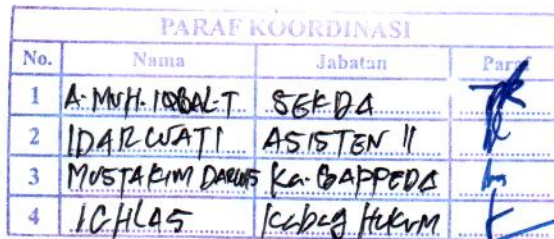 PARAF KOORDINASI
No. Nama Jabatan Paraf
1 A. MUH. IQBAL.T SEKDA
2 IDARWATI ASISTEN II
3 MUSTAKIM DARWIS Ka. BAPPEDA
4 ICHLAS Kabag HUKUM